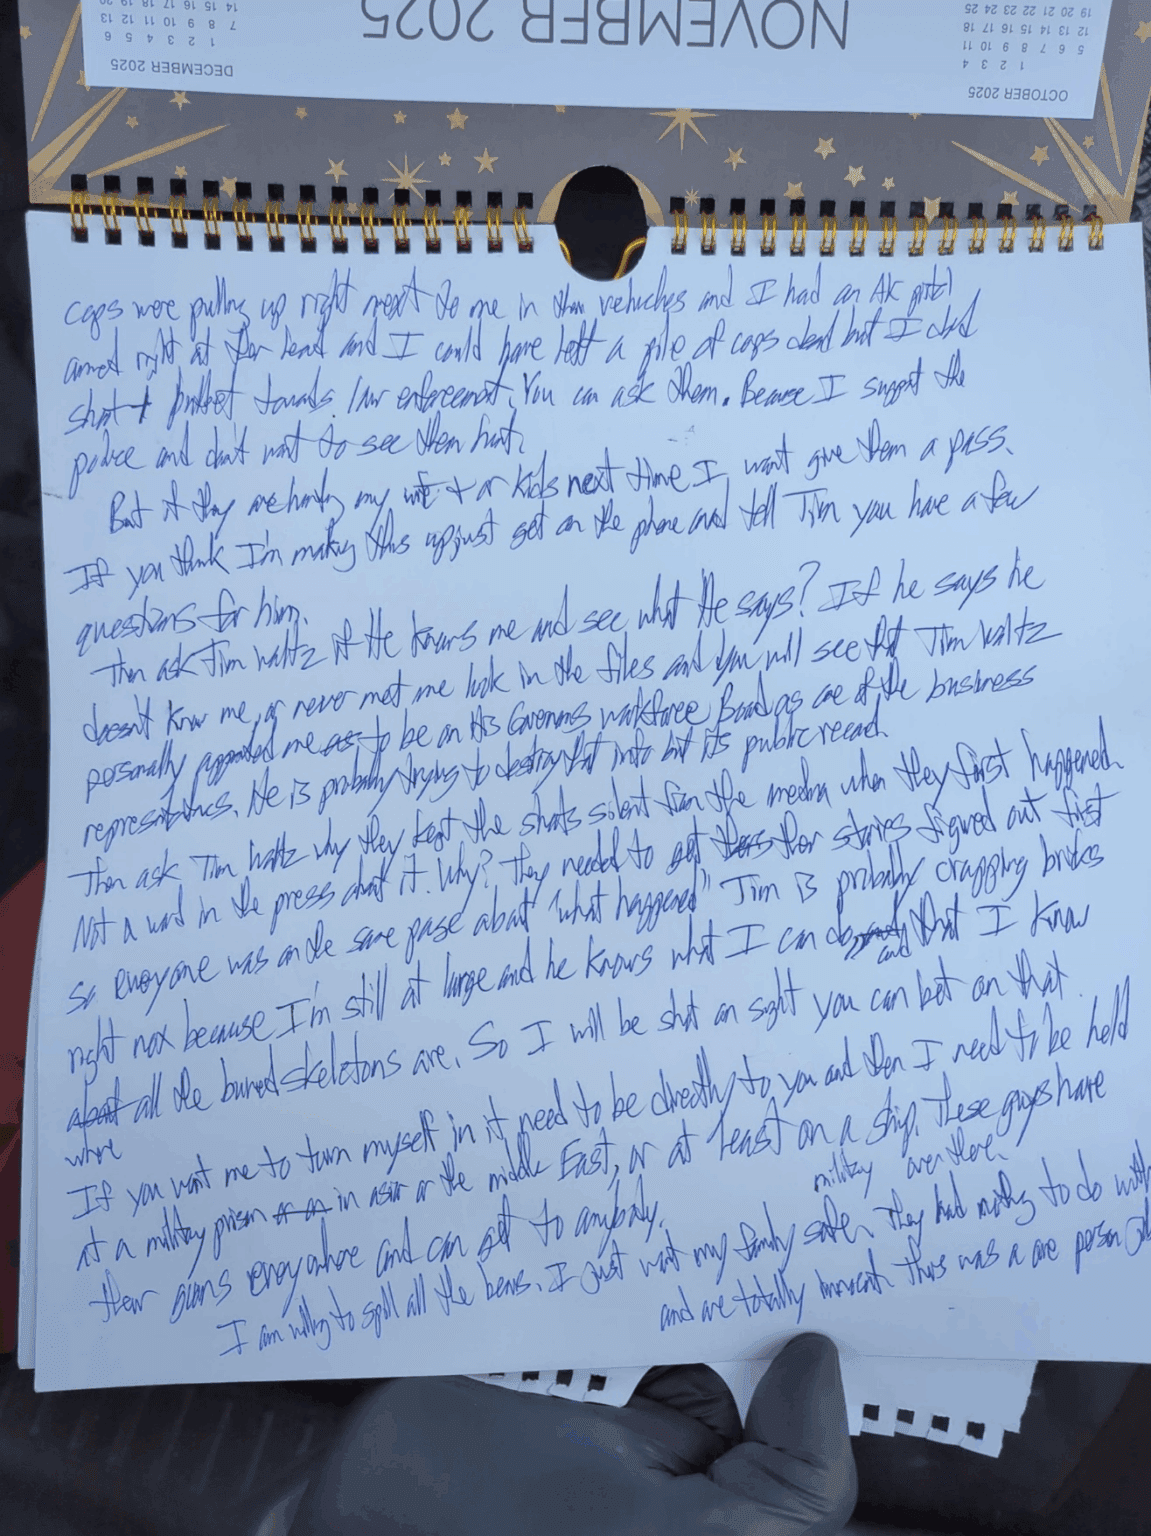 NOVEMBER 2025
DECEMBER 2025
1 2 3 4 5 6
7 8 9 10 11 12 13
14 15 16 17 18 19 20
OCTOBER 2025
1 2 3 4
5 6 7 8 9 10 11
12 13 14 15 16 17 18
19 20 21 22 23 24 25
cops were pulling up right next to me in their vehicles and I had an AK pistol
aimed right at their head and I could have left a pile of cops dead but I did
shot 1 bullet towards law enforcement. You can ask them. Because I support the
police and don't want to see them hurt.
But if they are hurting my wife + or kids next time I wont give them a pass.
If you think I'm making this up just get on the phone and tell Tim you have a few
questions for him.
Then ask Tim Waltz if He knows me and see what He says? If he says he
doesn't know me, or never met me look in the files and you will see that Tim Waltz
personally appointed me as to be on His Governors workforce Board as one of the business
representatives. He is probably trying to destroy that info but its public record.
Then ask Tim Waltz why they kept the shots silent from the media when they first happened
Not a word in the press about it. Why? They needed to get their stories figured out first
so everyone was on the same page about "what happened" Tim is probably crapping bricks
right now because I'm still at large and he knows what I can do, and that I know
about where all the buried skeletons are. So I will be shot on sight you can bet on that.
If you want me to turn myself in it need to be directly to you and then I need to be held
at a military prison or on in asia or the middle East, or at least on a military ship. These guys have
their goons everywhere and can get to anybody. over there.
I am willing to spill all the beans. I just want my family safe. They had nothing to do with
and are totally innocent. This was a one person